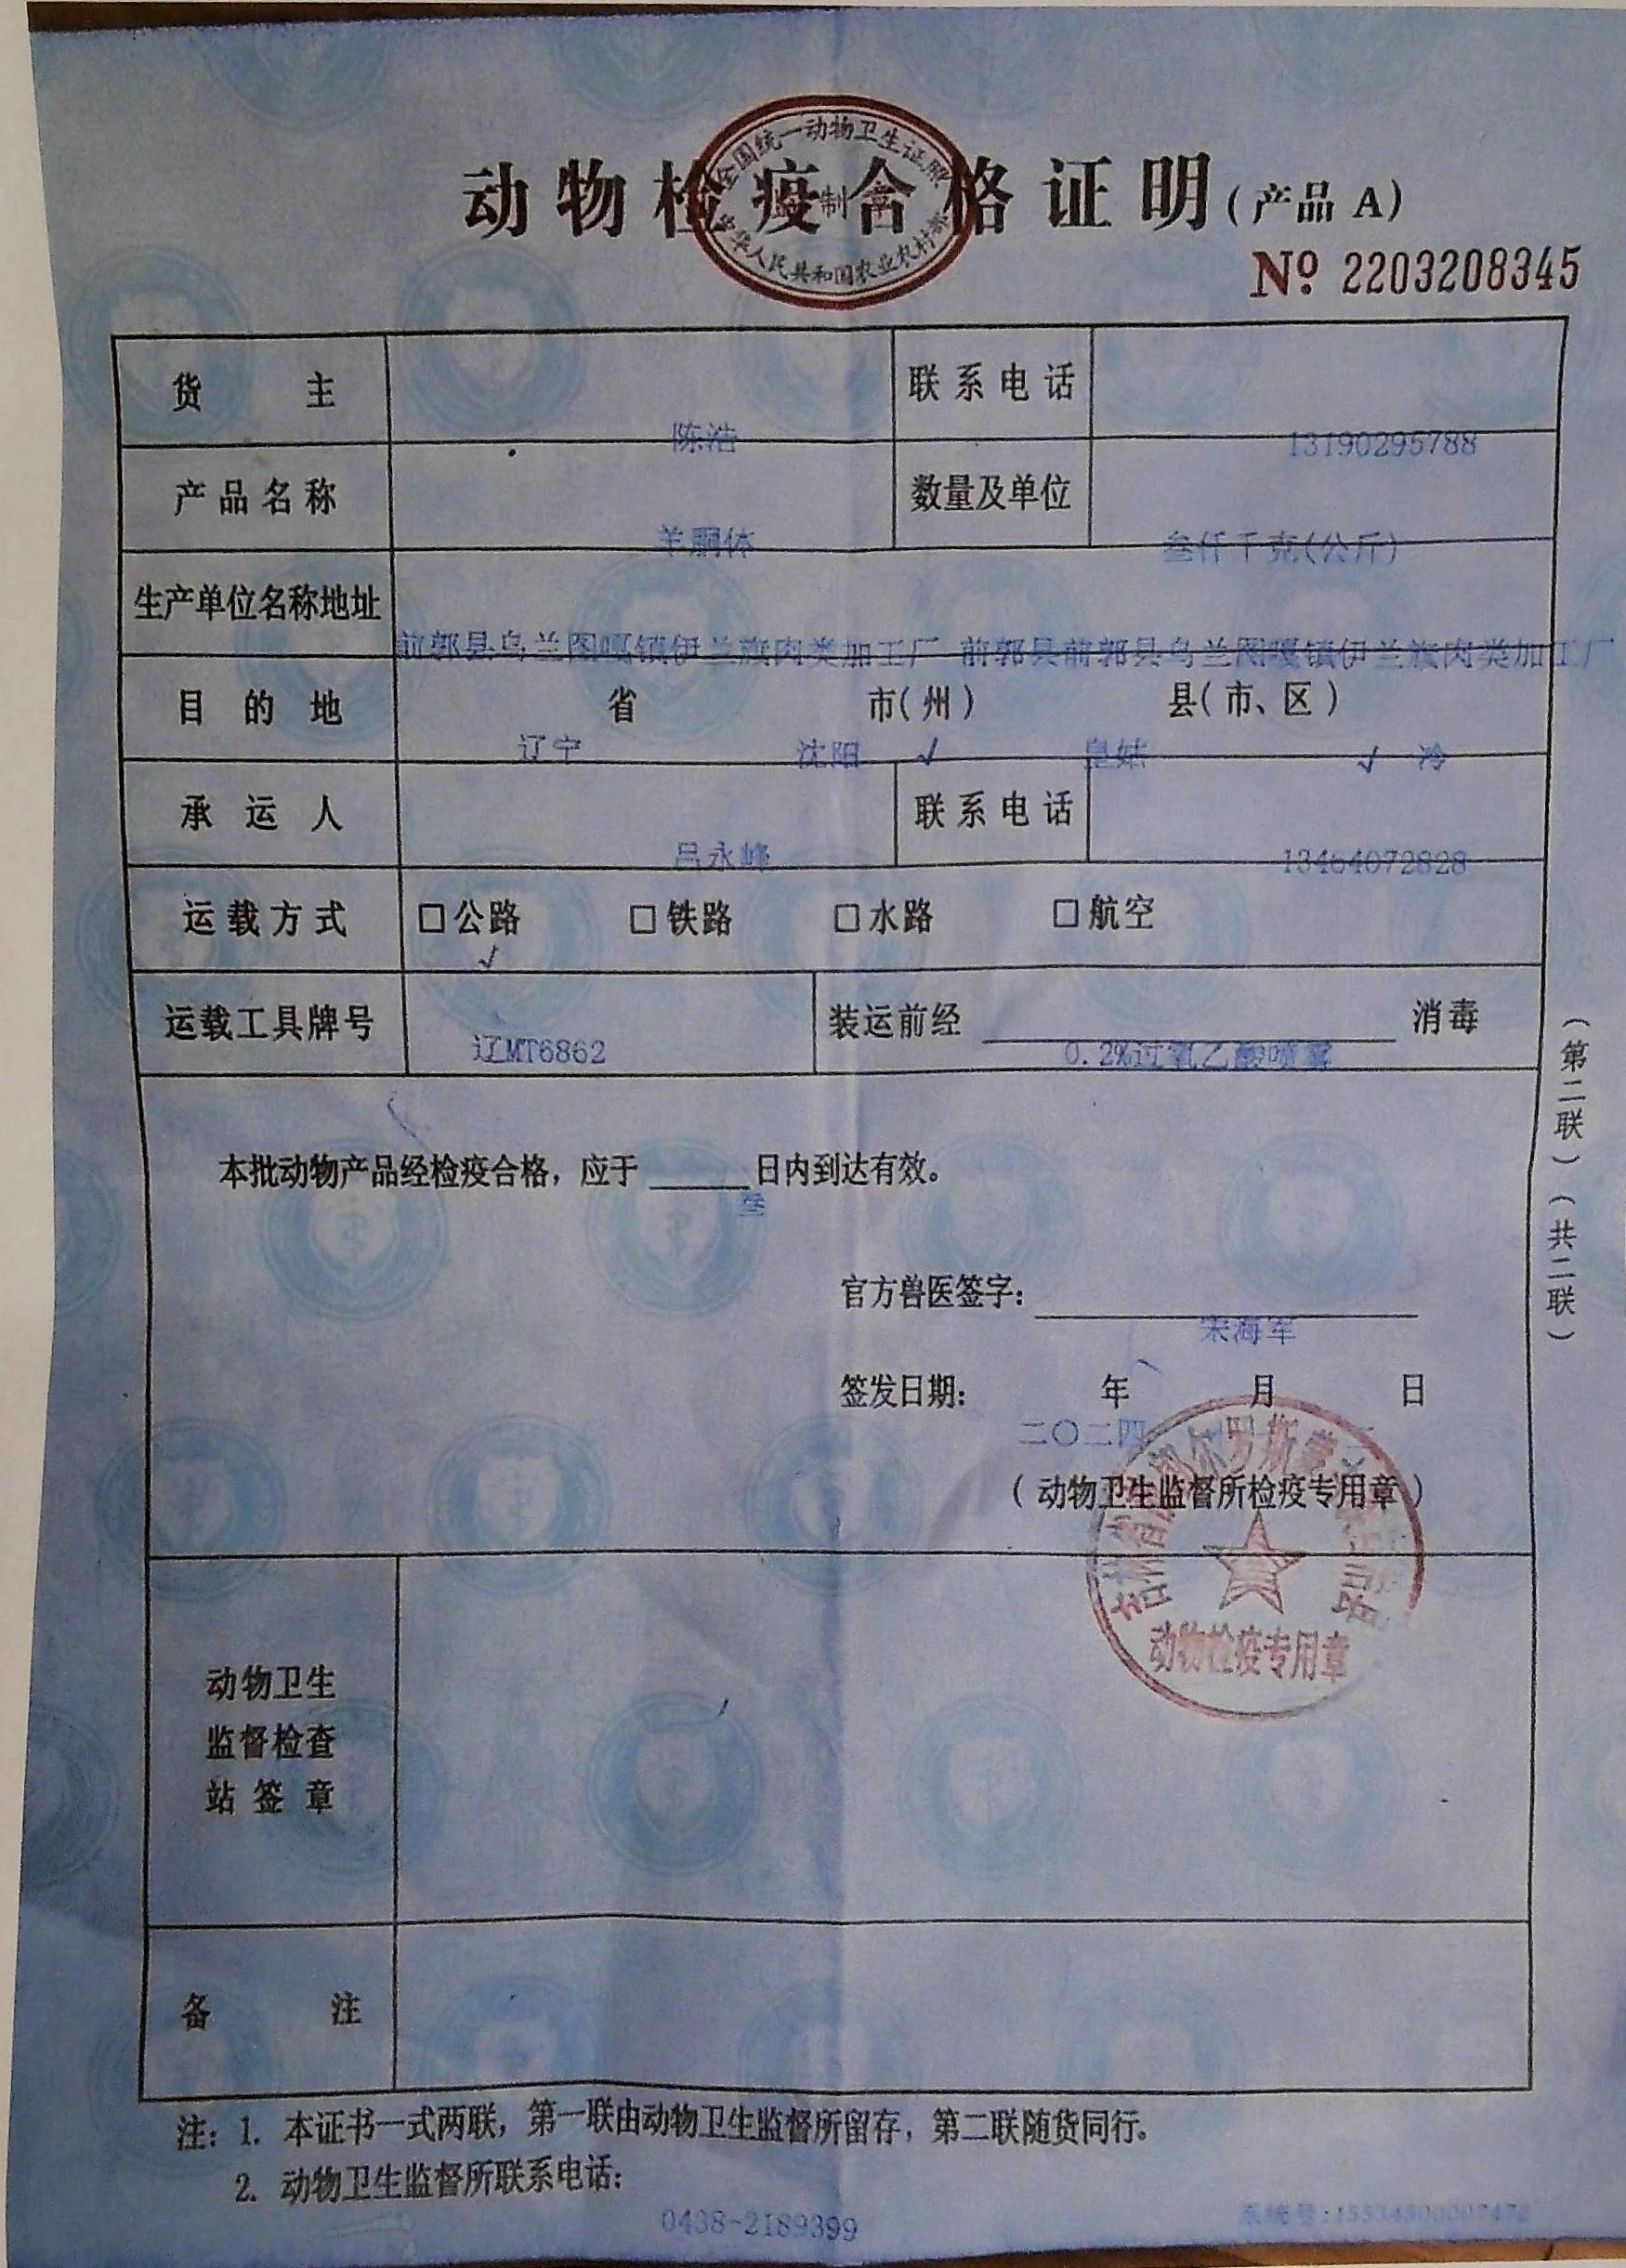 全国统一动物卫生证照
监制章
中华人民共和国农业农村部
动物检疫合格证明(产品 A)
№ 2203208345
货主 联系电话
陈浩 13190295788
产品名称 数量及单位
羊胴体 叁仟千克(公斤)
生产单位名称地址
前郭县乌兰图嘎镇伊兰族肉类加工厂 前郭县前郭县乌兰图嘎镇伊兰族肉类加工厂
目的地 省 市(州) 县(市、区)
辽宁 沈阳 √ 皇姑 √ 冷
承运人 联系电话
吕永峰 13464072828
运载方式 □公路 □铁路 □水路 □航空
√
运载工具牌号 装运前经 消毒
辽MT6862 0.2%过氧乙酸喷雾
本批动物产品经检疫合格，应于 日内到达有效。
叁
官方兽医签字：
宋海军
签发日期： 年 月 日
二〇二四
(动物卫生监督所检疫专用章)
动物检疫专用章
动物卫生
监督检查
站签章
备注
注：1. 本证书一式两联，第一联由动物卫生监督所留存，第二联随货同行。
2. 动物卫生监督所联系电话：
0438-2189399
(第二联)(共二联)